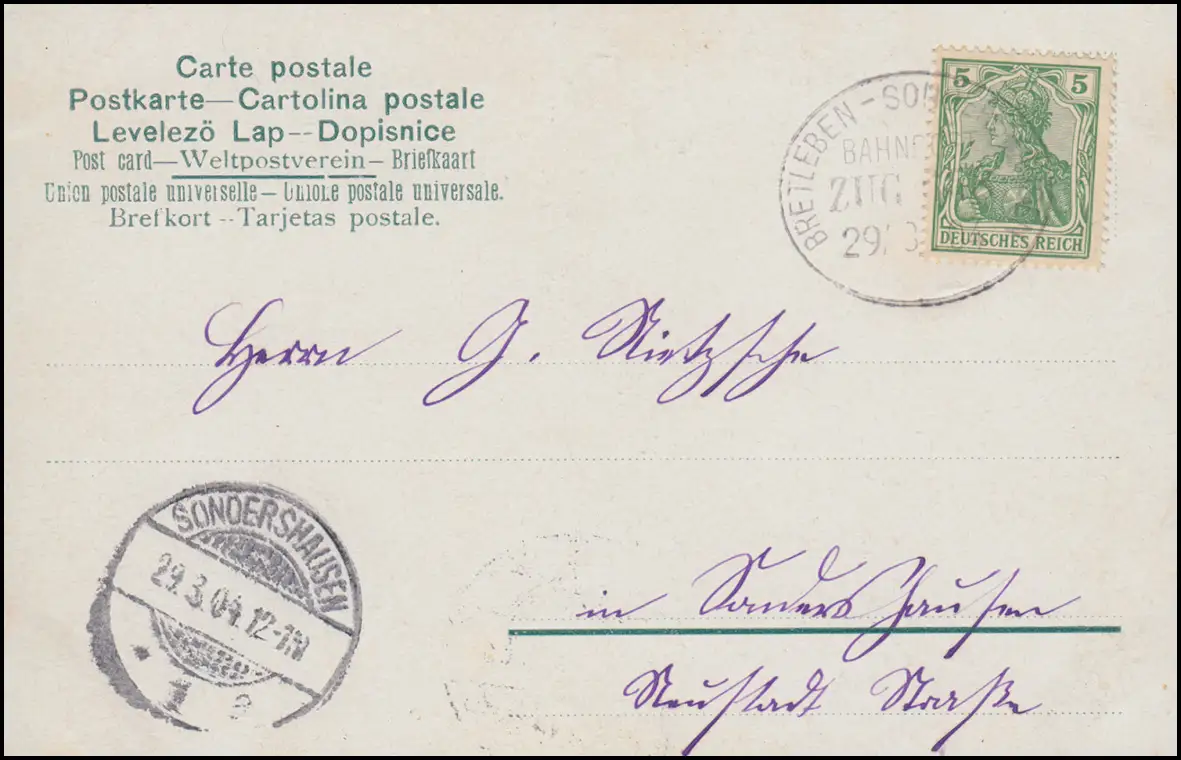 Carte postale
Postkarte—Cartolina postale
Levelezö Lap--Dopisnice
Post card—Weltpostverein—Briefkaart
Union postale universelle—Unione postale universale.
Brefkort--Tarjetas postale.
BRETLEBEN - SO
BAHN
ZUG
29/
5 5
DEUTSCHES REICH
Herrn G. Nietzsche
SONDERSHAUSEN
29.3.04.12-1N
1 a
in Sondershausen
Neustadt Straße